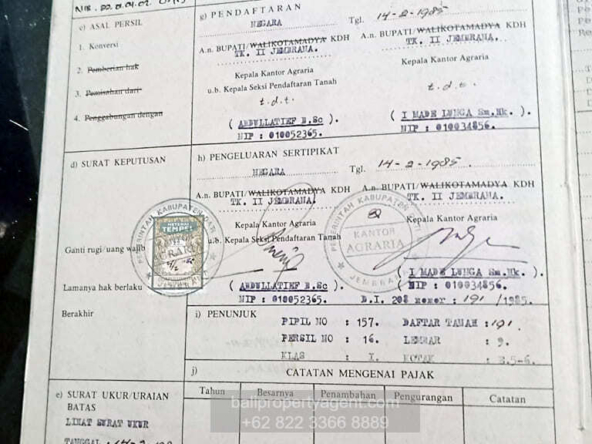 c) ASAL PERSIL
1. Konversi
2. Pemberian hak
3. Pemisahan dari
4. Penggabungan dengan
g) PENDAFTARAN
NEGARA Tgl. 14-2-1985
A.n. BUPATI/WALIKOTAMADYA KDH
TK. II JEMBRANA.
Kepala Kantor Agraria
u.b. Kepala Seksi Pendaftaran Tanah
t.d.t.
( ABDULLATIEF B.Sc ).
NIP : 010052365.
A.n. BUPATI/WALIKOTAMADYA KDH
TK. II JEMBRANA.
Kepala Kantor Agraria
t.d.t.
( I MADE LUNGA Sm.Hk. ).
NIP : 010034856.
d) SURAT KEPUTUSAN
Ganti rugi/uang wajib
Lamanya hak berlaku
Berakhir
h) PENGELUARAN SERTIPIKAT
NEGARA Tgl. 14-2-1985.
A.n. BUPATI/WALIKOTAMADYA KDH
TK. II JEMBRANA.
Kepala Kantor Agraria
u.b. Kepala Seksi Pendaftaran Tanah
( ABDULLATIEF B.Sc ).
NIP : 010052365.
A.n. BUPATI/WALIKOTAMADYA KDH
TK. II JEMBRANA.
Kepala Kantor Agraria
( I MADE LUNGA Sm.Hk. ).
NIP : 010034856.
D.I. 208 nomor : 191 /1985.
KANTOR
AGRARIA
i) PENUNJUK
PIPIL NO : 157. DAFTAR TANAH : 191.
PERSIL NO : 16. LEMBAR : 9.
KLAS : I. KOTAK : 3.5-6.
j) CATATAN MENGENAI PAJAK
Tahun Besarnya Penambahan Pengurangan Catatan
e) SURAT UKUR/URAIAN
BATAS
LIHAT SURAT UKUR
balipropertyagent.com
+62 822 3366 8889